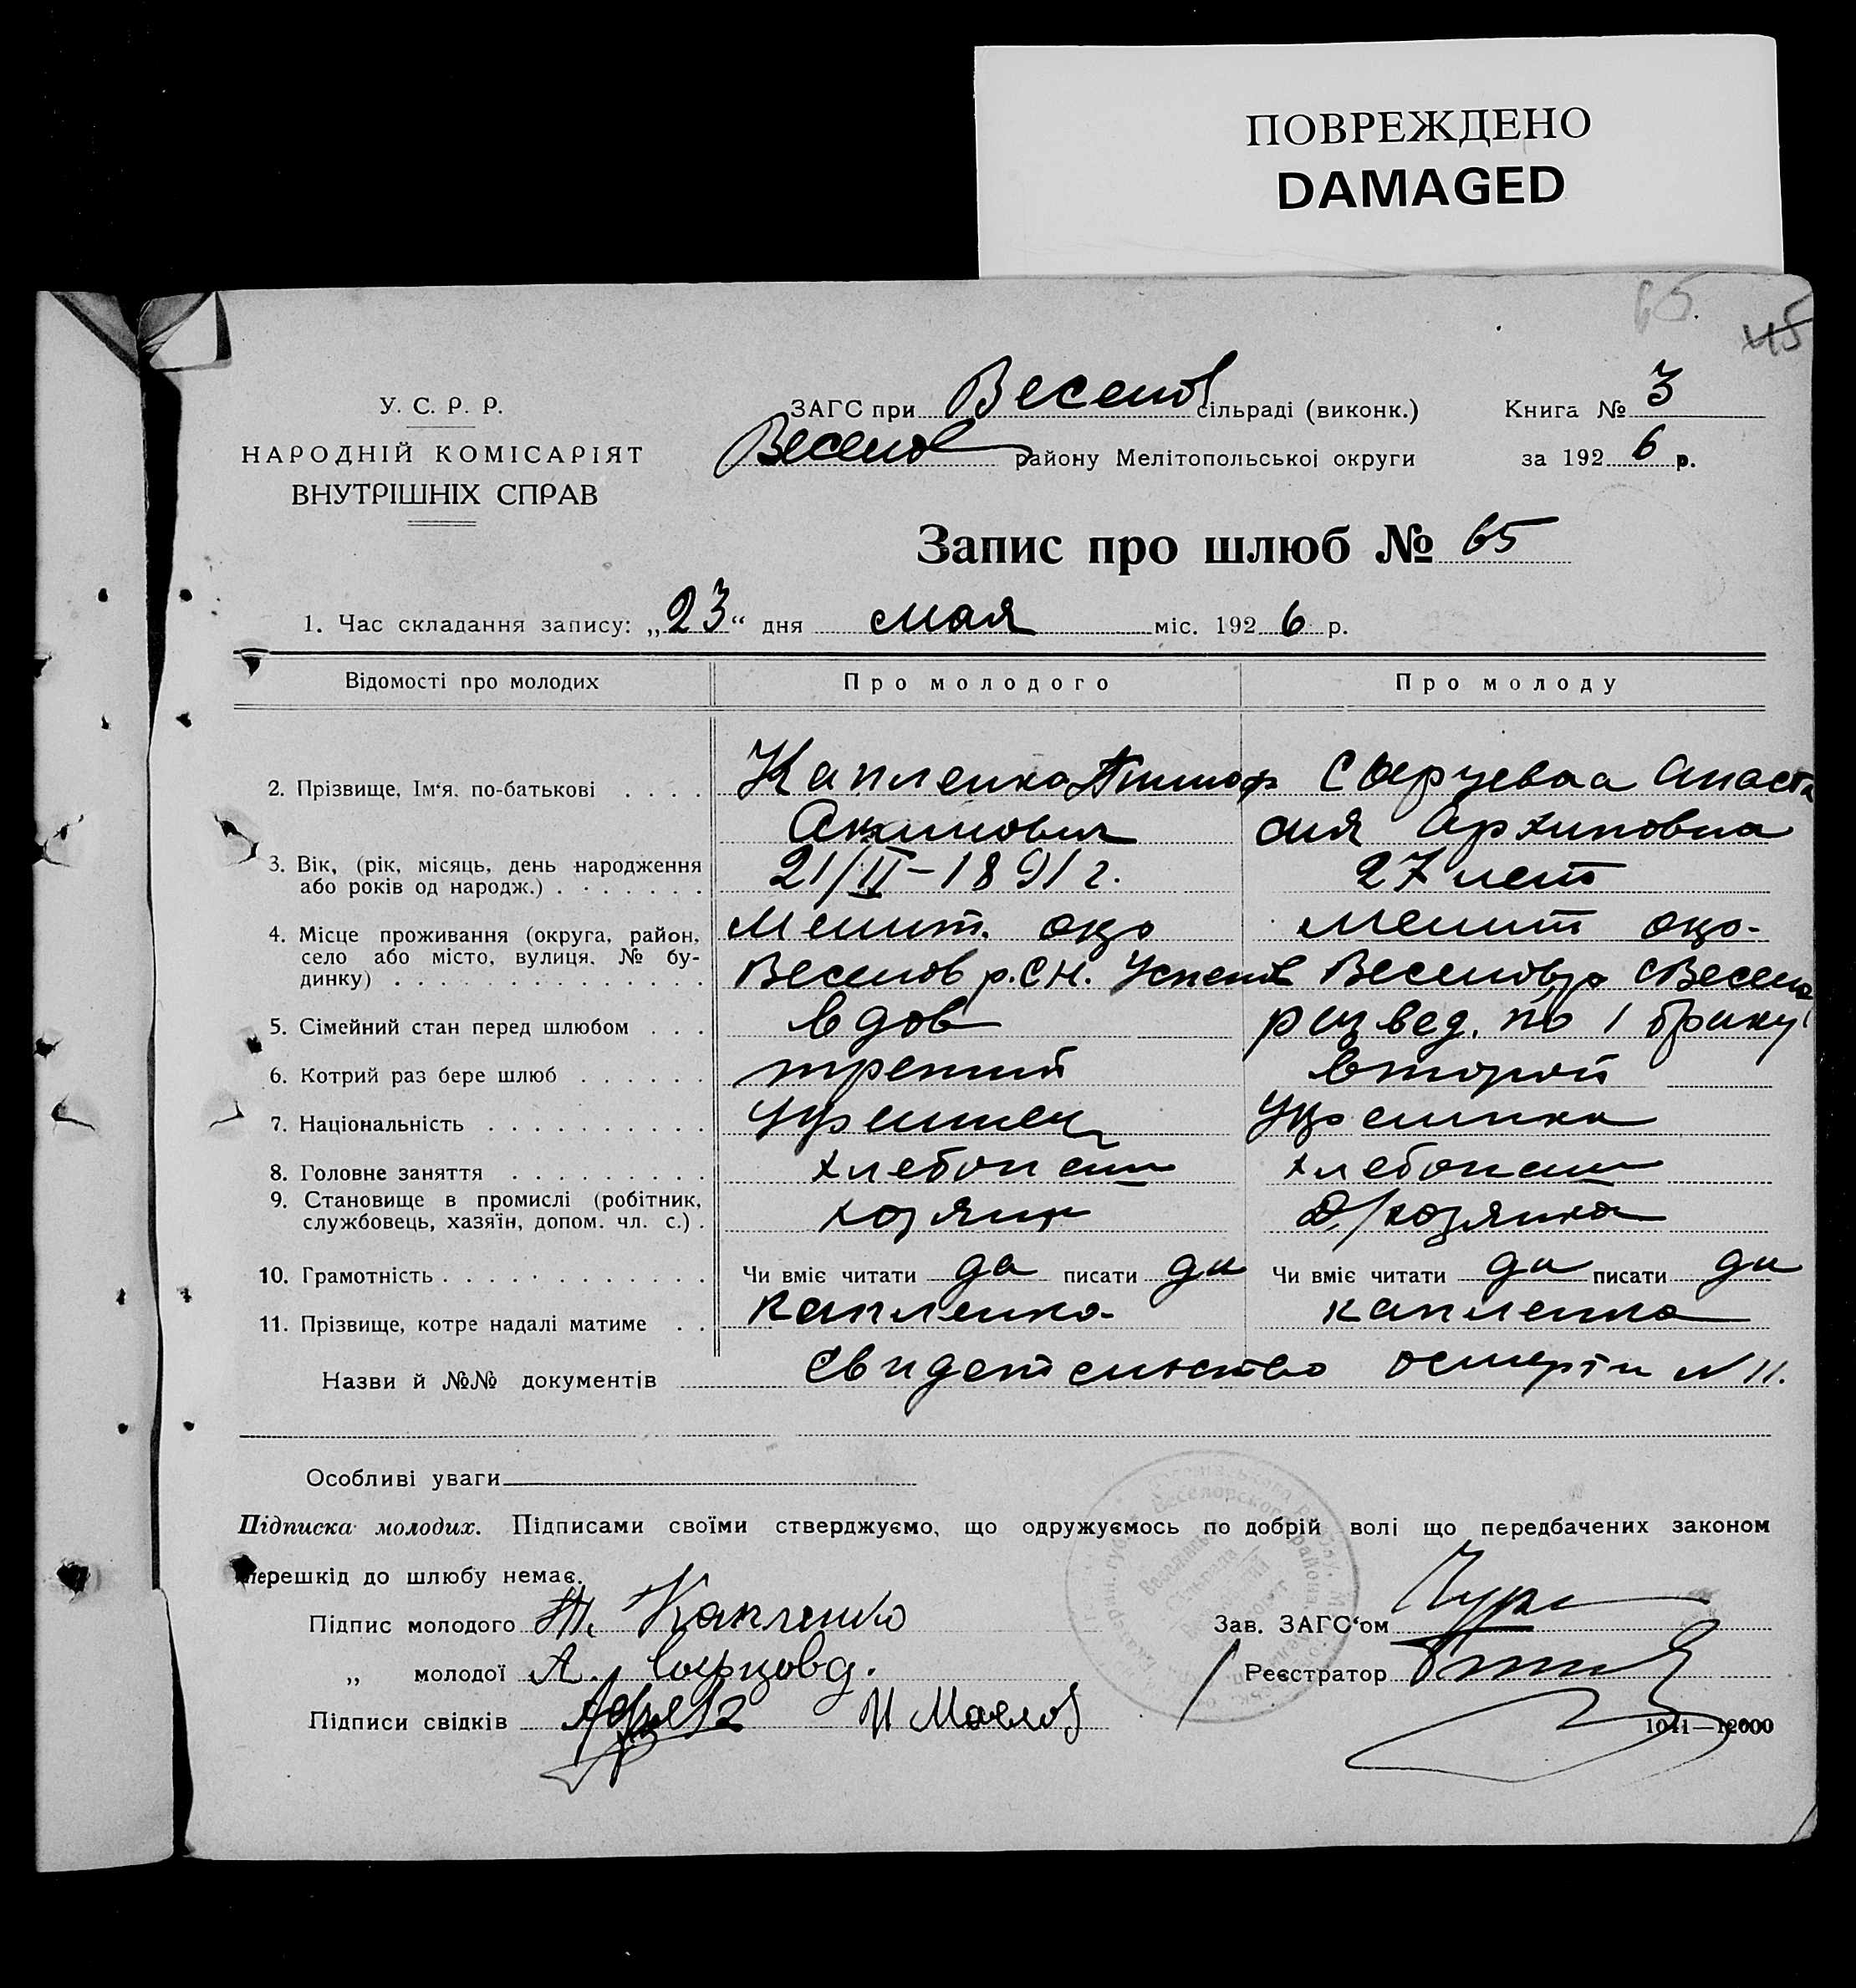 ПОВРЕЖДЕНО
DAMAGED
65.
45
У. С. Р. Р.
НАРОДНІЙ КОМІСАРІЯТ
ВНУТРІШНІХ СПРАВ
ЗАГС при Веселов сільраді (виконк.)
Веселов району Мелітопольської округи
Книга № 3
за 1926 р.
Запис про шлюб № 65
1. Час складання запису: „23“ дня мая міс. 1926 р.
Відомості про молодих Про молодого Про молоду
2. Прізвище, Ім‘я, по-батькові . . . . Капленко Тимоф Сырцевпа Анаста
Акимович сия Архиповна
3. Вік, (рік, місяць, день народження
або років од народж.) . . . . . . . 21/II-1891 г. 27 лет
4. Місце проживання (округа, район, Мелит. окр Мелит окр-
село або місто, вулиця, № бу-
динку) . . . . . . . . . . . . . . Веселов р. С Н. Успенов Веселов р С Весело
5. Сімейний стан перед шлюбом . . . вдов развед. по 1 браку
6. Котрий раз бере шлюб . . . . . . третий второй
7. Національність . . . . . . . . . . Украинец Украинка
8. Головне заняття . . . . . . . . . хлебопаш хлебопаш
9. Становище в промислі (робітник,
службовець, хазяїн, допом. чл. с.) . хозяин Д/хозяика
10. Грамотність . . . . . . . . . . . . Чи вміє читати да писати да Чи вміє читати да писати да
11. Прізвище, котре надалі матиме . . Капленко Капленко
Назви й №№ документів Свидетельство о смерти N 11.
Особливі уваги
Підписка молодих. Підписами своїми стверджуємо, що одружуємось по добрій волі що передбачених законом
перешкід до шлюбу немає.
Підпис молодого Т. Капленко
„ молодої А. Сырцова.
Підписи свідків И Маслов
Зав. ЗАГС‘ом
Реєстратор
1041—12000